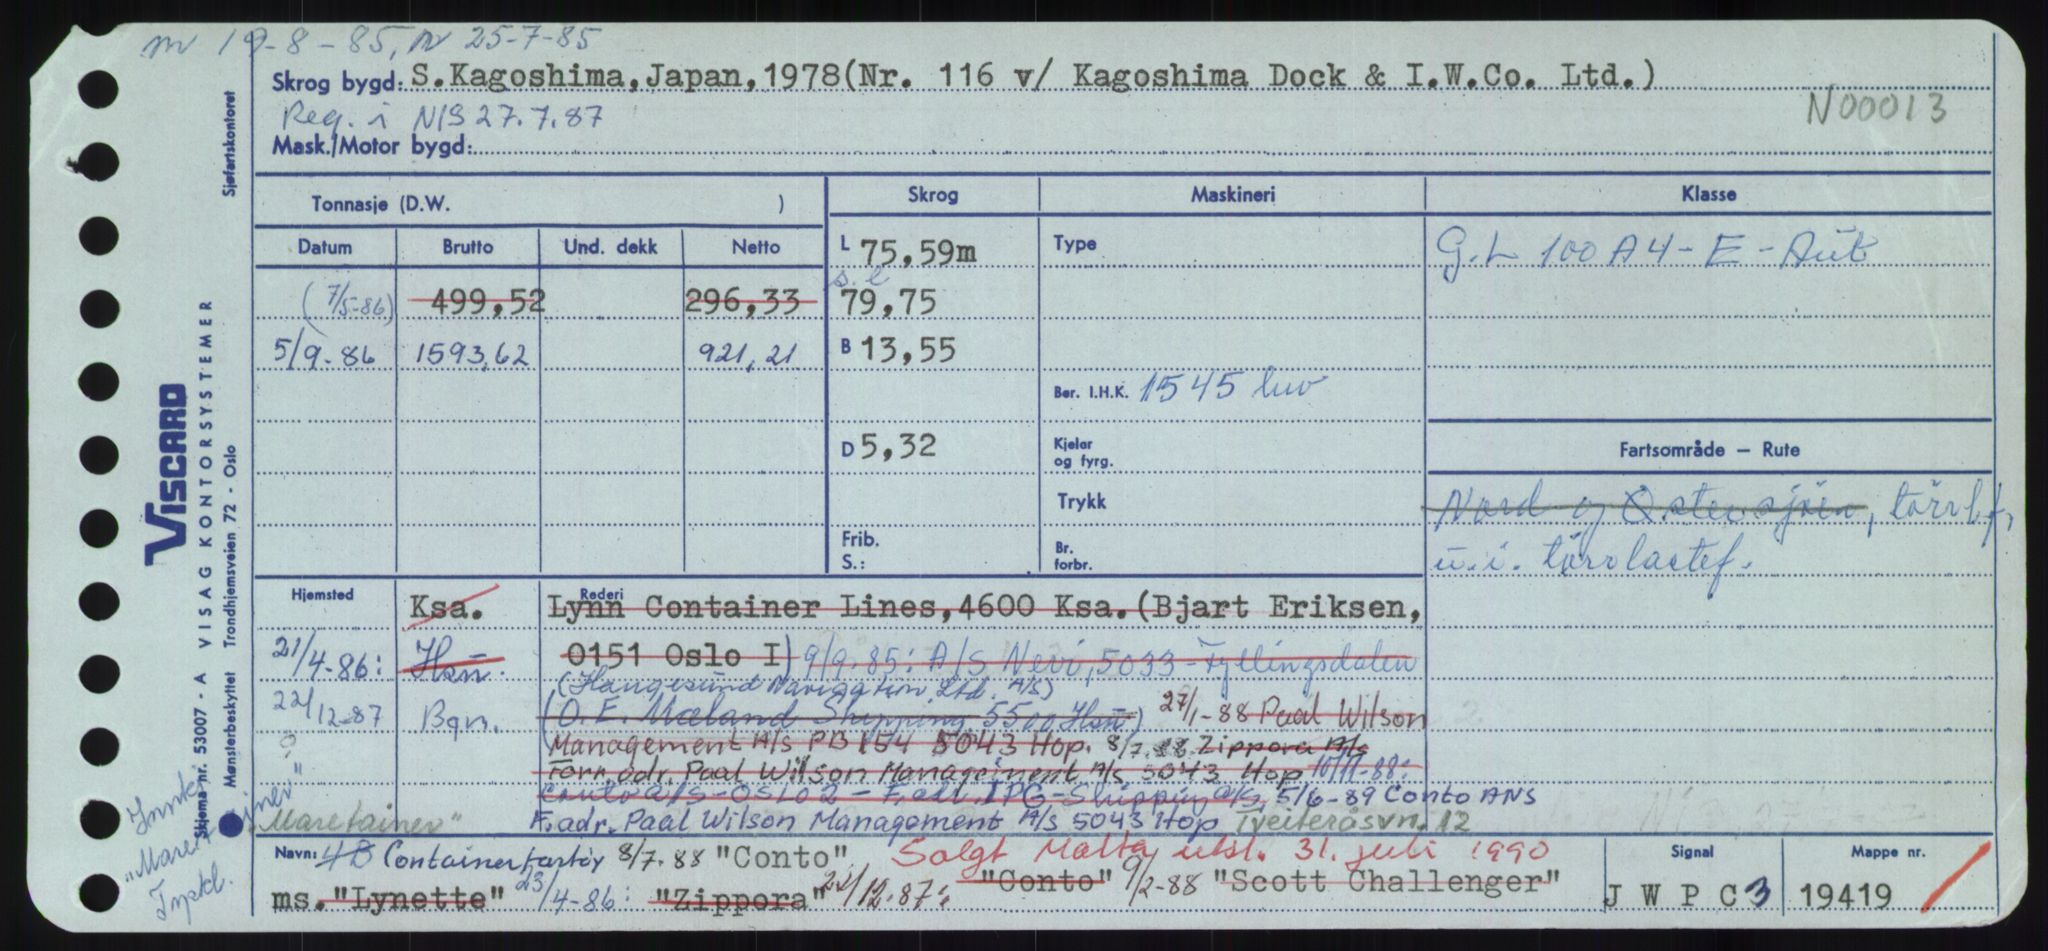 m 19-8-85, m 25-7-85
Skrog bygd: S.Kagoshima, Japan, 1978(Nr. 116 v/ Kagoshima Dock & I.W.Co. Ltd.)
Reg. i NIS 27.7.87
N00013
Mask./Motor bygd:
Tonnasje (D.W. )
Skrog
Maskineri
Klasse
Datum Brutto Und. dekk Netto
L 75,59m
Type
G.L 100 A4 - E - Aut
(7/5-86) 499,52 296,33
s.l
79,75
5/9-86 1593,62 921,21
B 13,55
Ber. I.H.K. 1545
D 5,32
Kjeler og fyrg.
Fartsområde – Rute
Trykk
Nord og Østersjøen,
u.i. tørrlastef.
Frib.
S.:
Br. forbr.
Hjemsted
Ksa.
Rederi
Lynn Container Lines, 4600 Ksa. (Bjart Eriksen,
21/4-86: Hsu.
0151 Oslo I) 9/9-85: A/S Nevi, 5033-Fyllingsdalen
(Haugesund Navigation Ltd. A/S)
22/12-87 Bgn.
(O.E. Mæland Shipping 5500 Hsu) 27/1-88 Paal Wilson
Management A/s PB 154 5043 Hop. 8/7.88 Zippora A/s
Forr.adr. Paal Wilson Management A/s 5043 Hop 10/11-88:
Conto a/s - OSLO 2 - F.adr. IPG-Shipping a/s, 5/6-89 Conto ANS
"Maretainer" F.adr. Paal Wilson Management A/s 5043 Hop Tveiteråsvn. 12
Navn: 4B Containerfartøy 8/7.88 "Conto" Solgt Malta utsl. 31. juli 1990
ms. "Lynette" 23/4-86: "Zippora" 22/12.87: "Conto" 9/2-88 "Scott Challenger"
Signal
J W P C 3
Mappe nr.
19419
Sjøfartskontoret
VISCARD
VISAG KONTORSYSTEMER
Trondhjemsveien 72 - Oslo
Skjema nr. 53007 - A
Mønsterbeskyttet